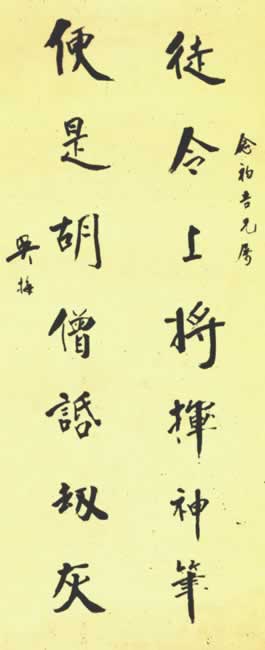 兄屬
徒令上將揮神筆
便是胡僧話劫灰
吳梅